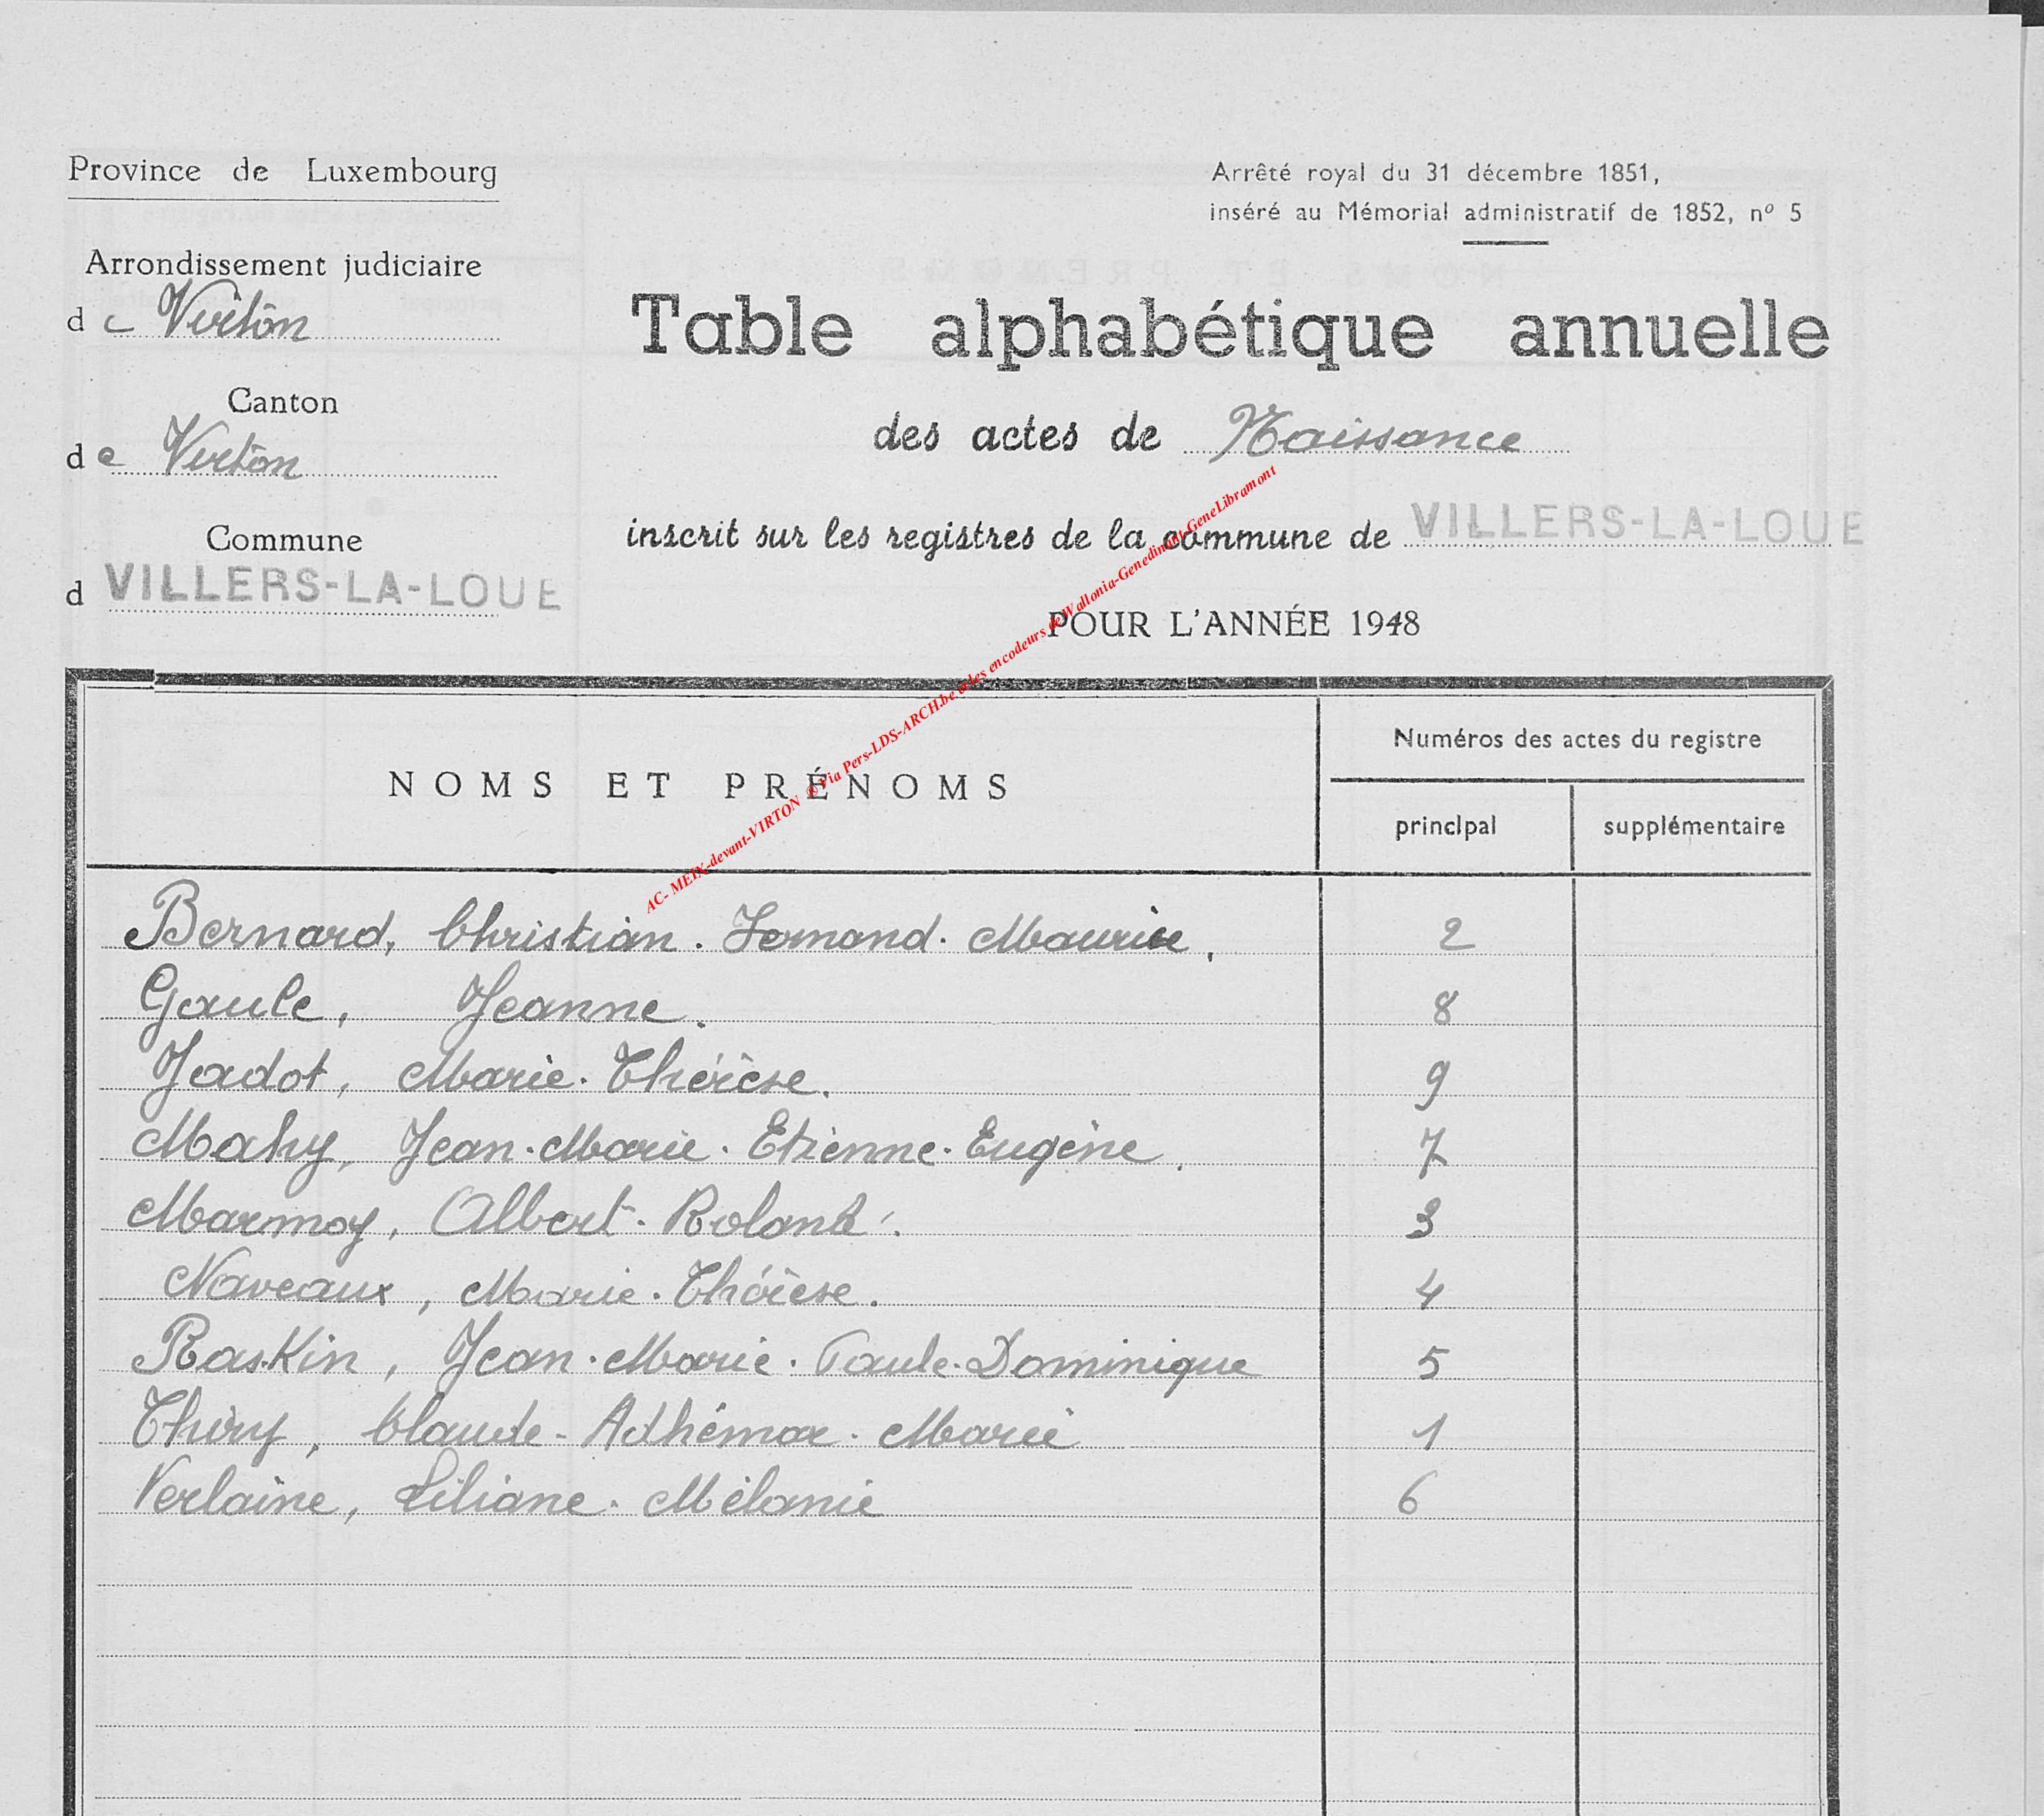 Province de Luxembourg
Arrêté royal du 31 décembre 1851,
inséré au Mémorial administratif de 1852, nº 5
Arrondissement judiciaire
de Virton
Table alphabétique annuelle
Canton
de Virton
des actes de Naissance
Commune
d VILLERS-LA-LOUE
inscrit sur les registres de la commune de VILLERS-LA-LOUE
POUR L'ANNÉE 1948
AC- MEIX-devant-VIRTON © Via Pers-LDS-ARCH.be et les encodeurs de Wallonia-Genedinant-GeneLibramont
NOMS ET PRÉNOMS
Numéros des actes du registre
principal supplémentaire
Bernard, Christian. Fernand. Maurice, 2
Gaule, Jeanne. 8
Jadot, Marie. Thérèse. 9
Mahy, Jean. Marie. Etienne. Eugène. 7
Marmoy, Albert. Roland. 3
Naveaux, Marie. Thérèse. 4
Raskin, Jean. Marie. Paule. Dominique 5
Thiry, Claude- Adhémar. Marie 1
Verlaine, Liliane. Mélanie 6